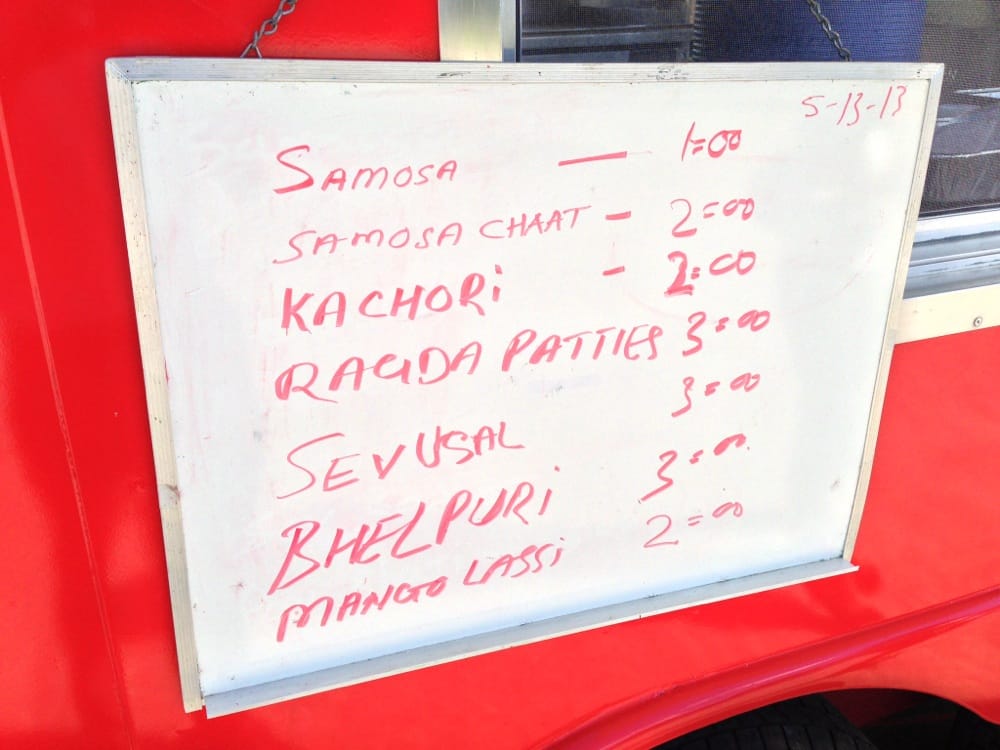 5-13-13
SAMOSA — 1=00
SAMOSA CHAAT - 2=00
KACHORi - 2=00
RAGDA PATTIES 3=00
SEVUSAL 3=00
BHELPURi 3=00
MANGO LASSi 2=00